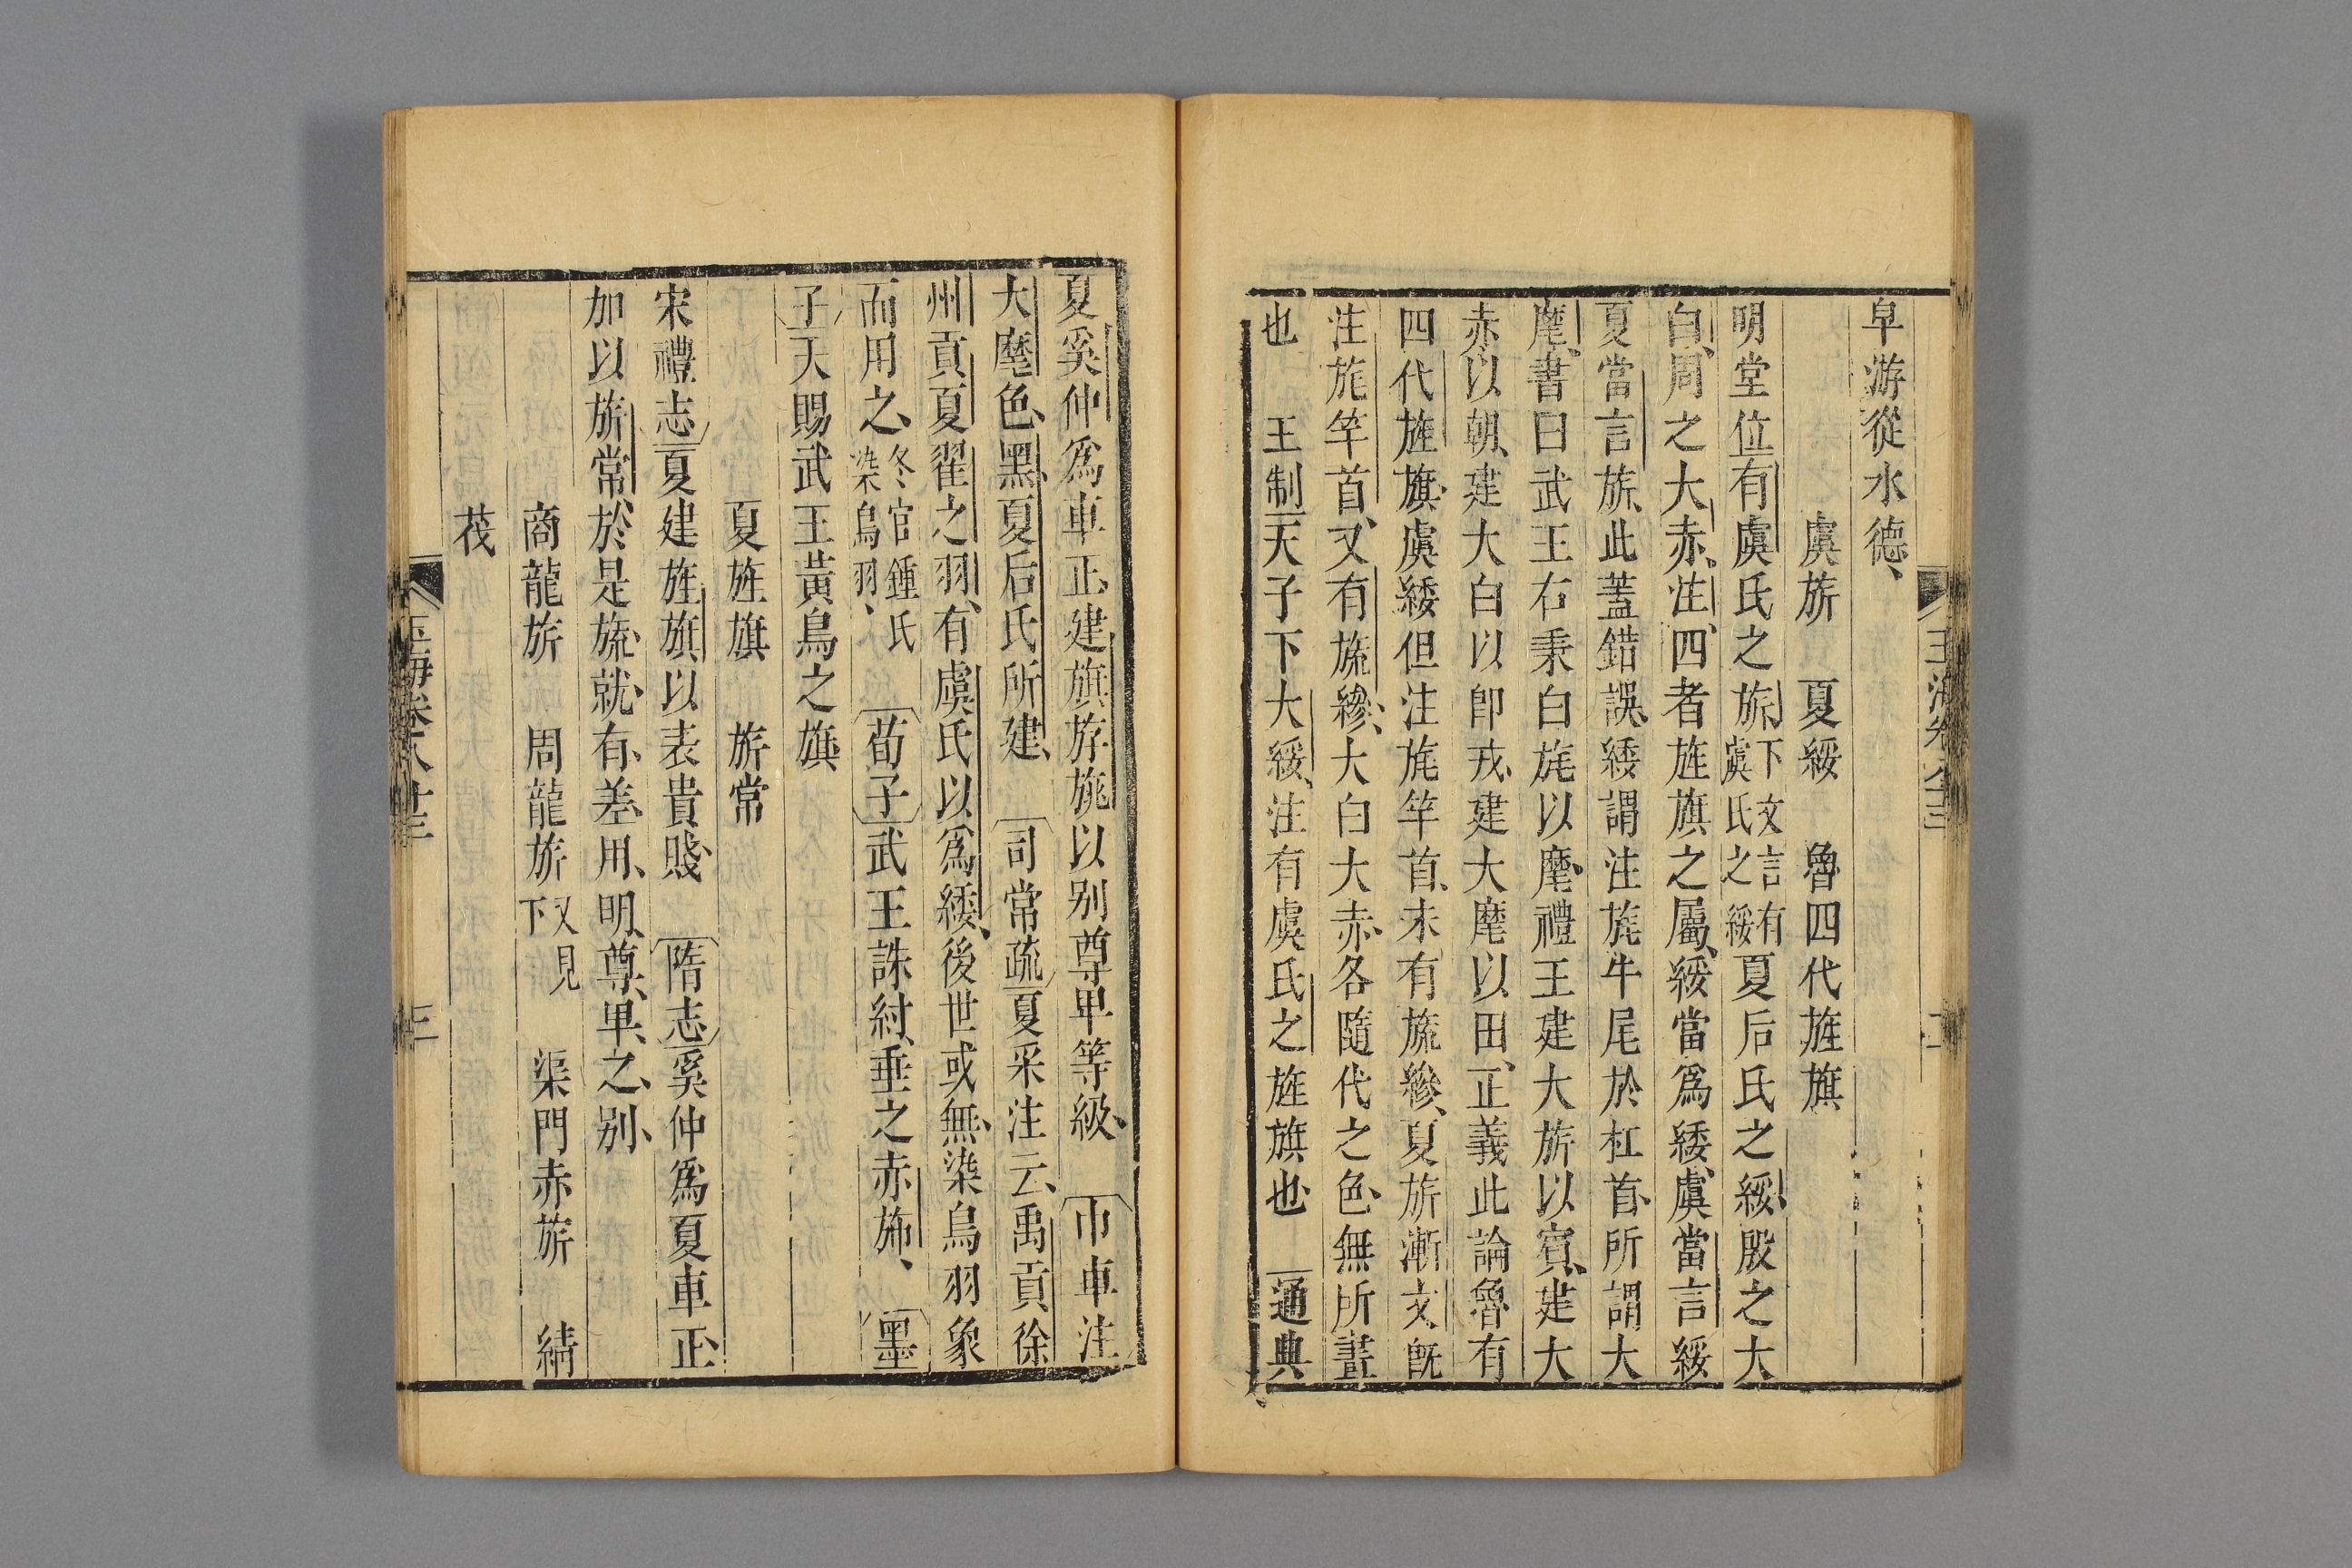 皁游從水德
虞旂　夏綏　魯四代旌旗
明堂位有虞氏之旂下文言有虞氏之綏夏后氏之綏殷之大
白周之大赤注四者旌旗之屬綏當爲緌虞當言綏
夏當言旂此蓋錯誤緌謂注旄牛尾於杠首所謂大
麾書曰武王右秉白旄以麾禮王建大旂以賓建大
赤以朝建大白以卽戎建大麾以田正義此論魯有
四代旌旗虞緌但注旄竿首未有旒縿夏旂漸文旣
注旄竿首又有旒縿大白大赤各隨代之色無所畫
也　王制天子下大綏注有虞氏之旌旗也　通典
夏奚仲爲車正建旗斿旐以别尊卑等級　巾車注
大麾色黑夏后氏所建　司常疏夏采注云禹貢徐
州貢夏翟之羽有虞氏以爲緌後世或無染鳥羽象
而用之冬官鍾氏染鳥羽　荀子武王誅紂垂之赤斾　墨
子天賜武王黃鳥之旗
夏旌旗　旂常
宋禮志夏建旌旗以表貴賤　隋志奚仲爲夏車正
加以旂常於是旒就有差用明尊卑之别
商龍旂　周龍旂又見下　渠門赤旂　綪
茷
玉海卷八十三
三